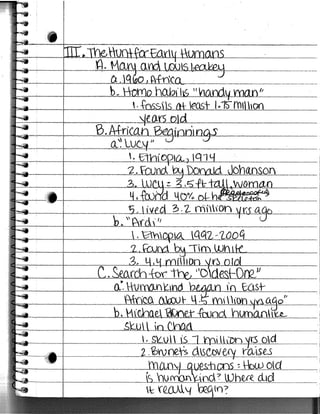 III. The Hunt for Early Humans
A. Mary and Louis Leakey
a. 1960, Africa
b. Homo habilis "handy man"
1. fossils at least 1.75 million
years old
B. African Beginnings
a. "Lucy"
1. Ethiopia, 1974
2. Found by Donald Johanson
3. Lucy = 3.5 ft tall, woman
4. found 40% of her skeleton
5. lived 3.2 million yrs ago
b. "Ardi"
1. Ethiopia 1992-2009
2. Found by Tim White
3. 4.4 million yrs old
C. Search for the, "Oldest One"
a. Humankind began in East
Africa about 4.5 million yrs ago"
b. Michael Brunet found humanlike
skull in Chad
1. Skull is 7 million yrs old
2. Brunet's discovery raises
many questions: How old
is humankind? Where did
it really begin?